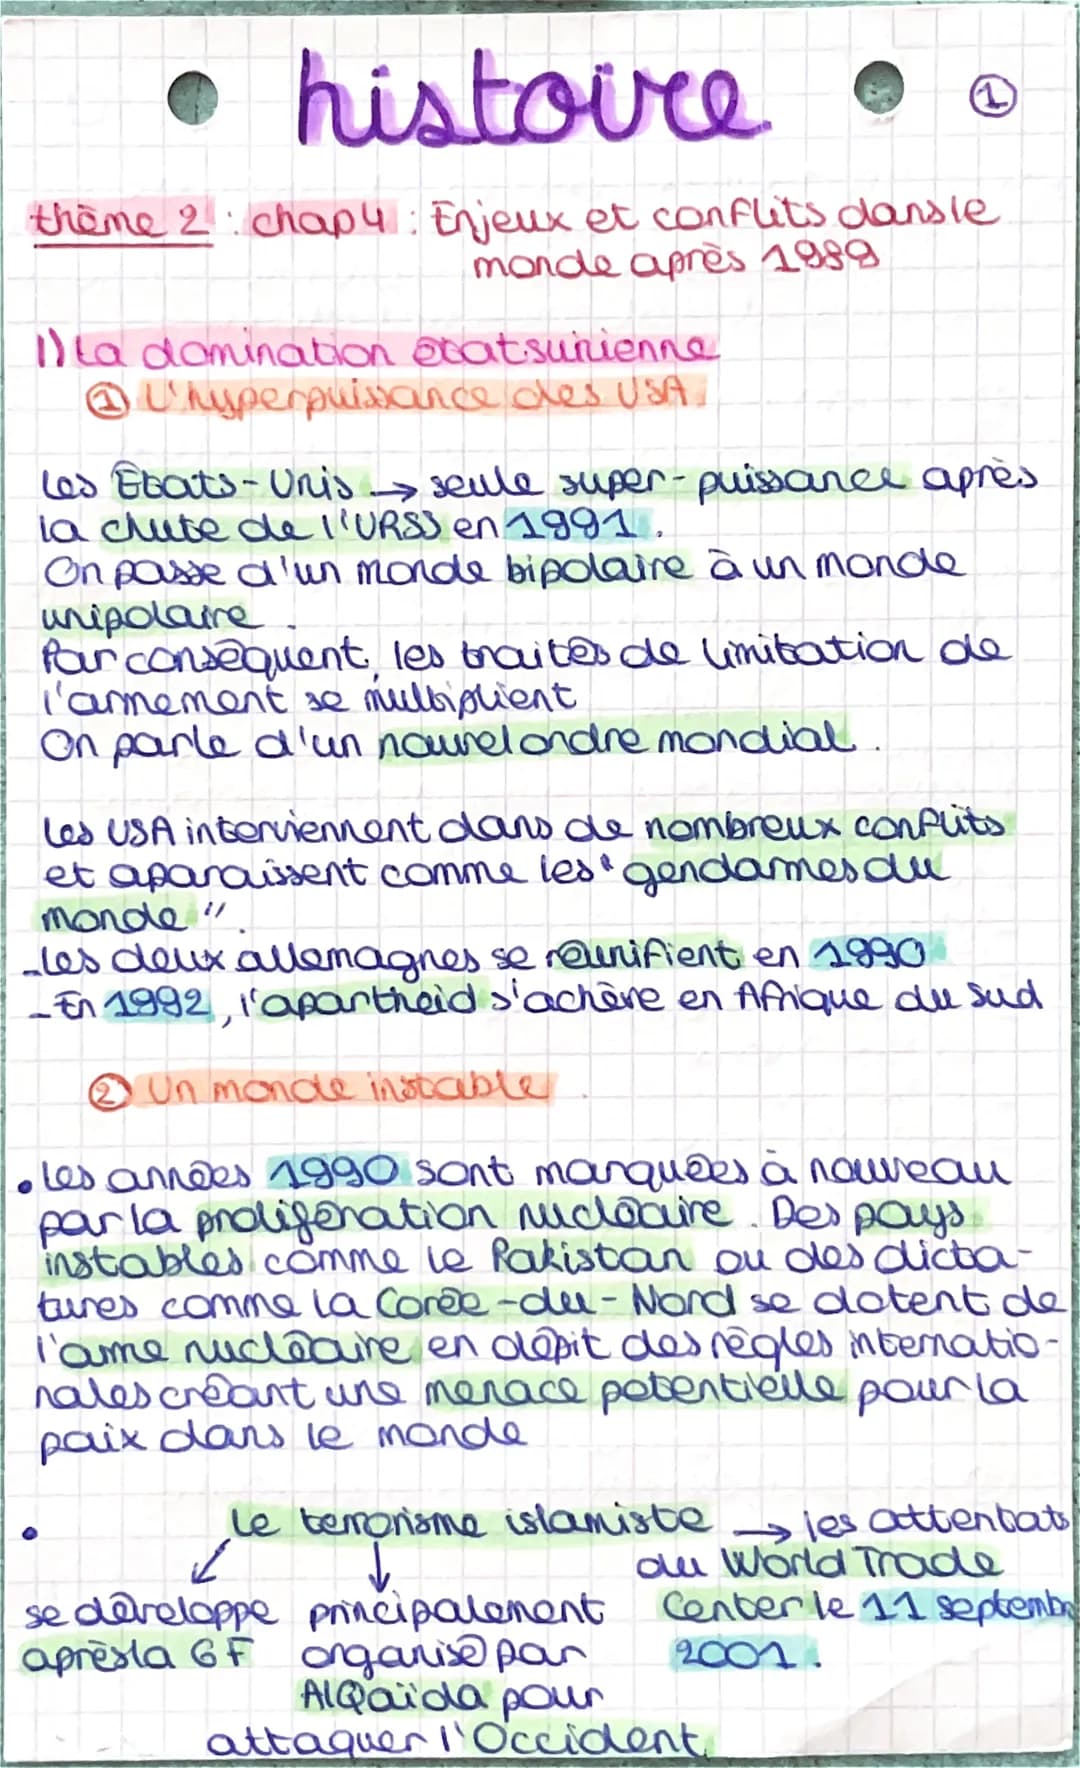 histoire
1
thème 2 : chap 4 : Enjeux et conflits dans le
monde après 1989
1) La domination étatsunienne
① L'hyperpuissance des USA.
Les États-Unis → seule super-puissance après
la chute de l'URSS en 1991.
On passe d'un monde bipolaire à un monde
unipolaire.
Par conséquent, les traités de limitation de
l'armement se multiplient
On parle d'un nouvel ordre mondial.
Les USA interviennent dans de nombreux conflits
et aparaissent comme les "gendarmes du
monde".
-Les deux allemagnes se réunifient en 1990
-En 1992, l'apartheid s'achève en Afrique du Sud
② Un monde instable
• Les années 1990 sont marquées à nouveau
par la prolifération nucléaire. Des pays
instables comme le Pakistan ou des dicta-
tures comme la Corée-du-Nord se dotent de
l'arme nucléaire en dépit des règles internatio-
nales créant une menace potentielle pour la
paix dans le monde
• Le terrorisme islamiste → les attentats
du World Trade
se développe principalement Center le 11 septembre
après la GF organisé par 2001.
AlQaïda pour
attaquer l'Occident.